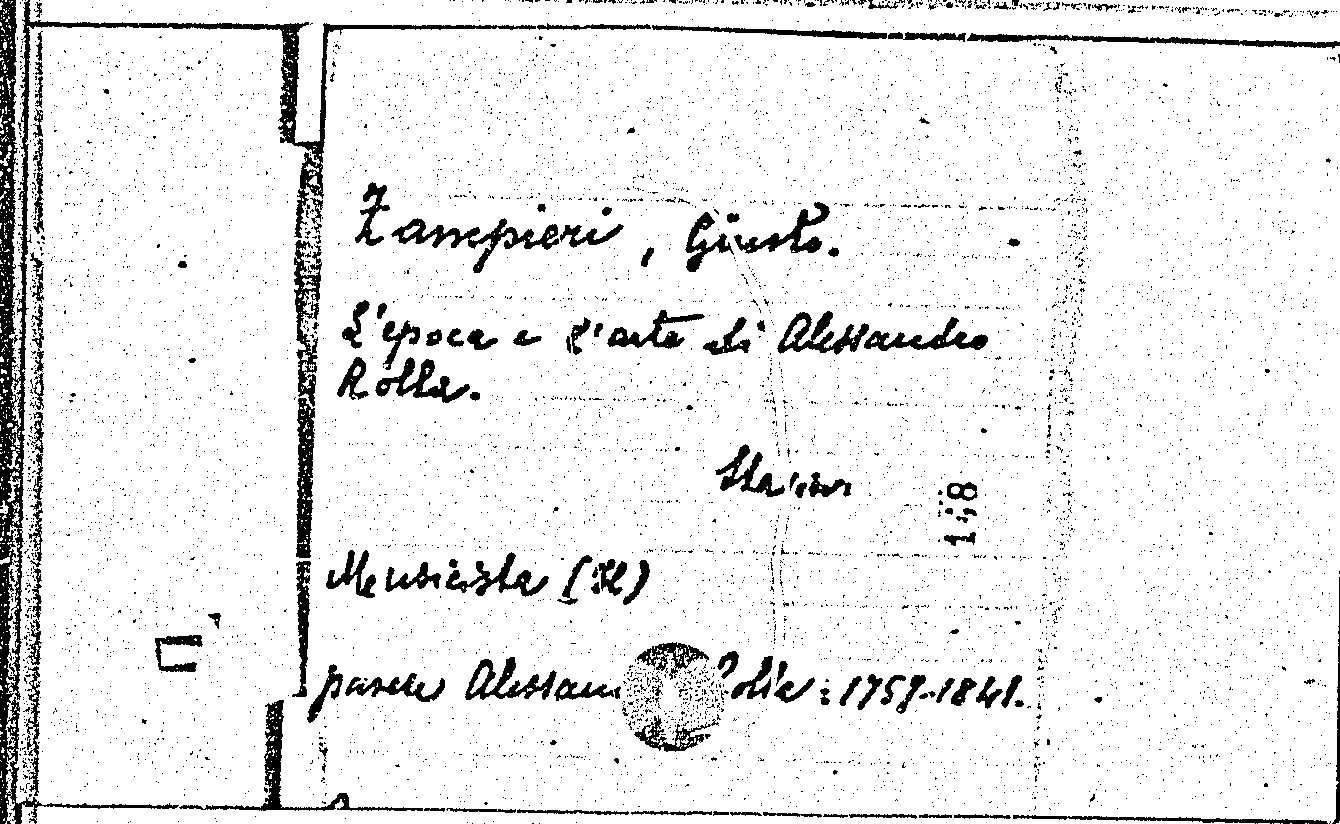 Zampieri, Giusto.
L'epoca e l'arte di Alessandro
Rolla.
148
Musicista (Il)
pavese Alessan Rolla: 1757-1841.